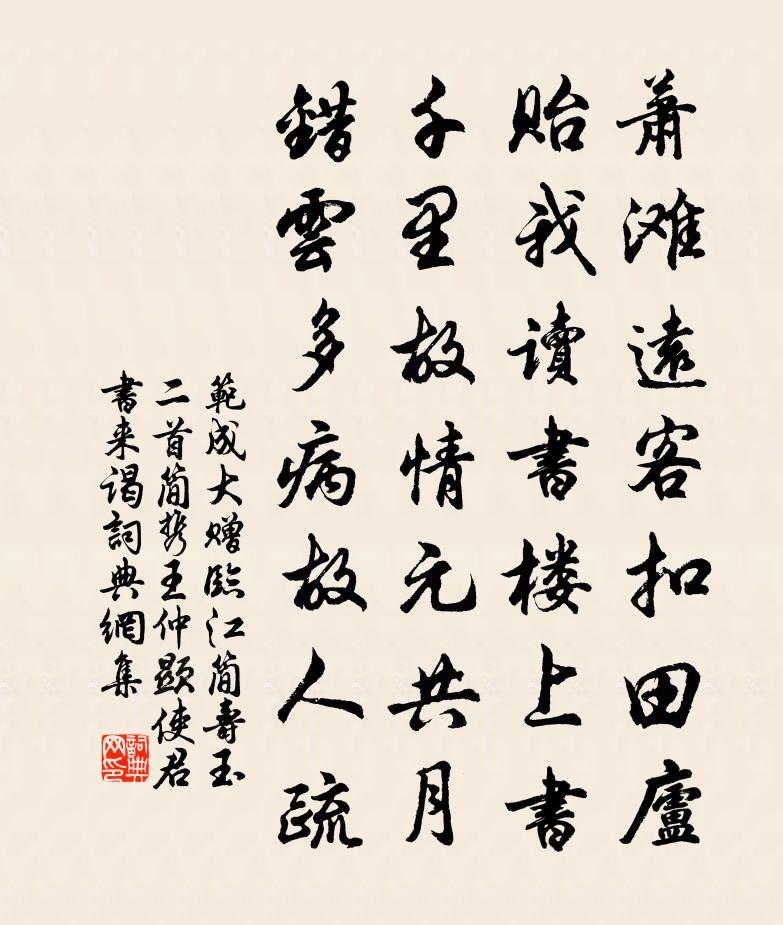 蕭滩遠客扣田廬
貽我讀書楼上書
千里故情元共月
錯雲多病故人疏
範成大贈臨江簡壽玉
二首簡携王仲顯使君
書来谒詞典網集
詞典网印